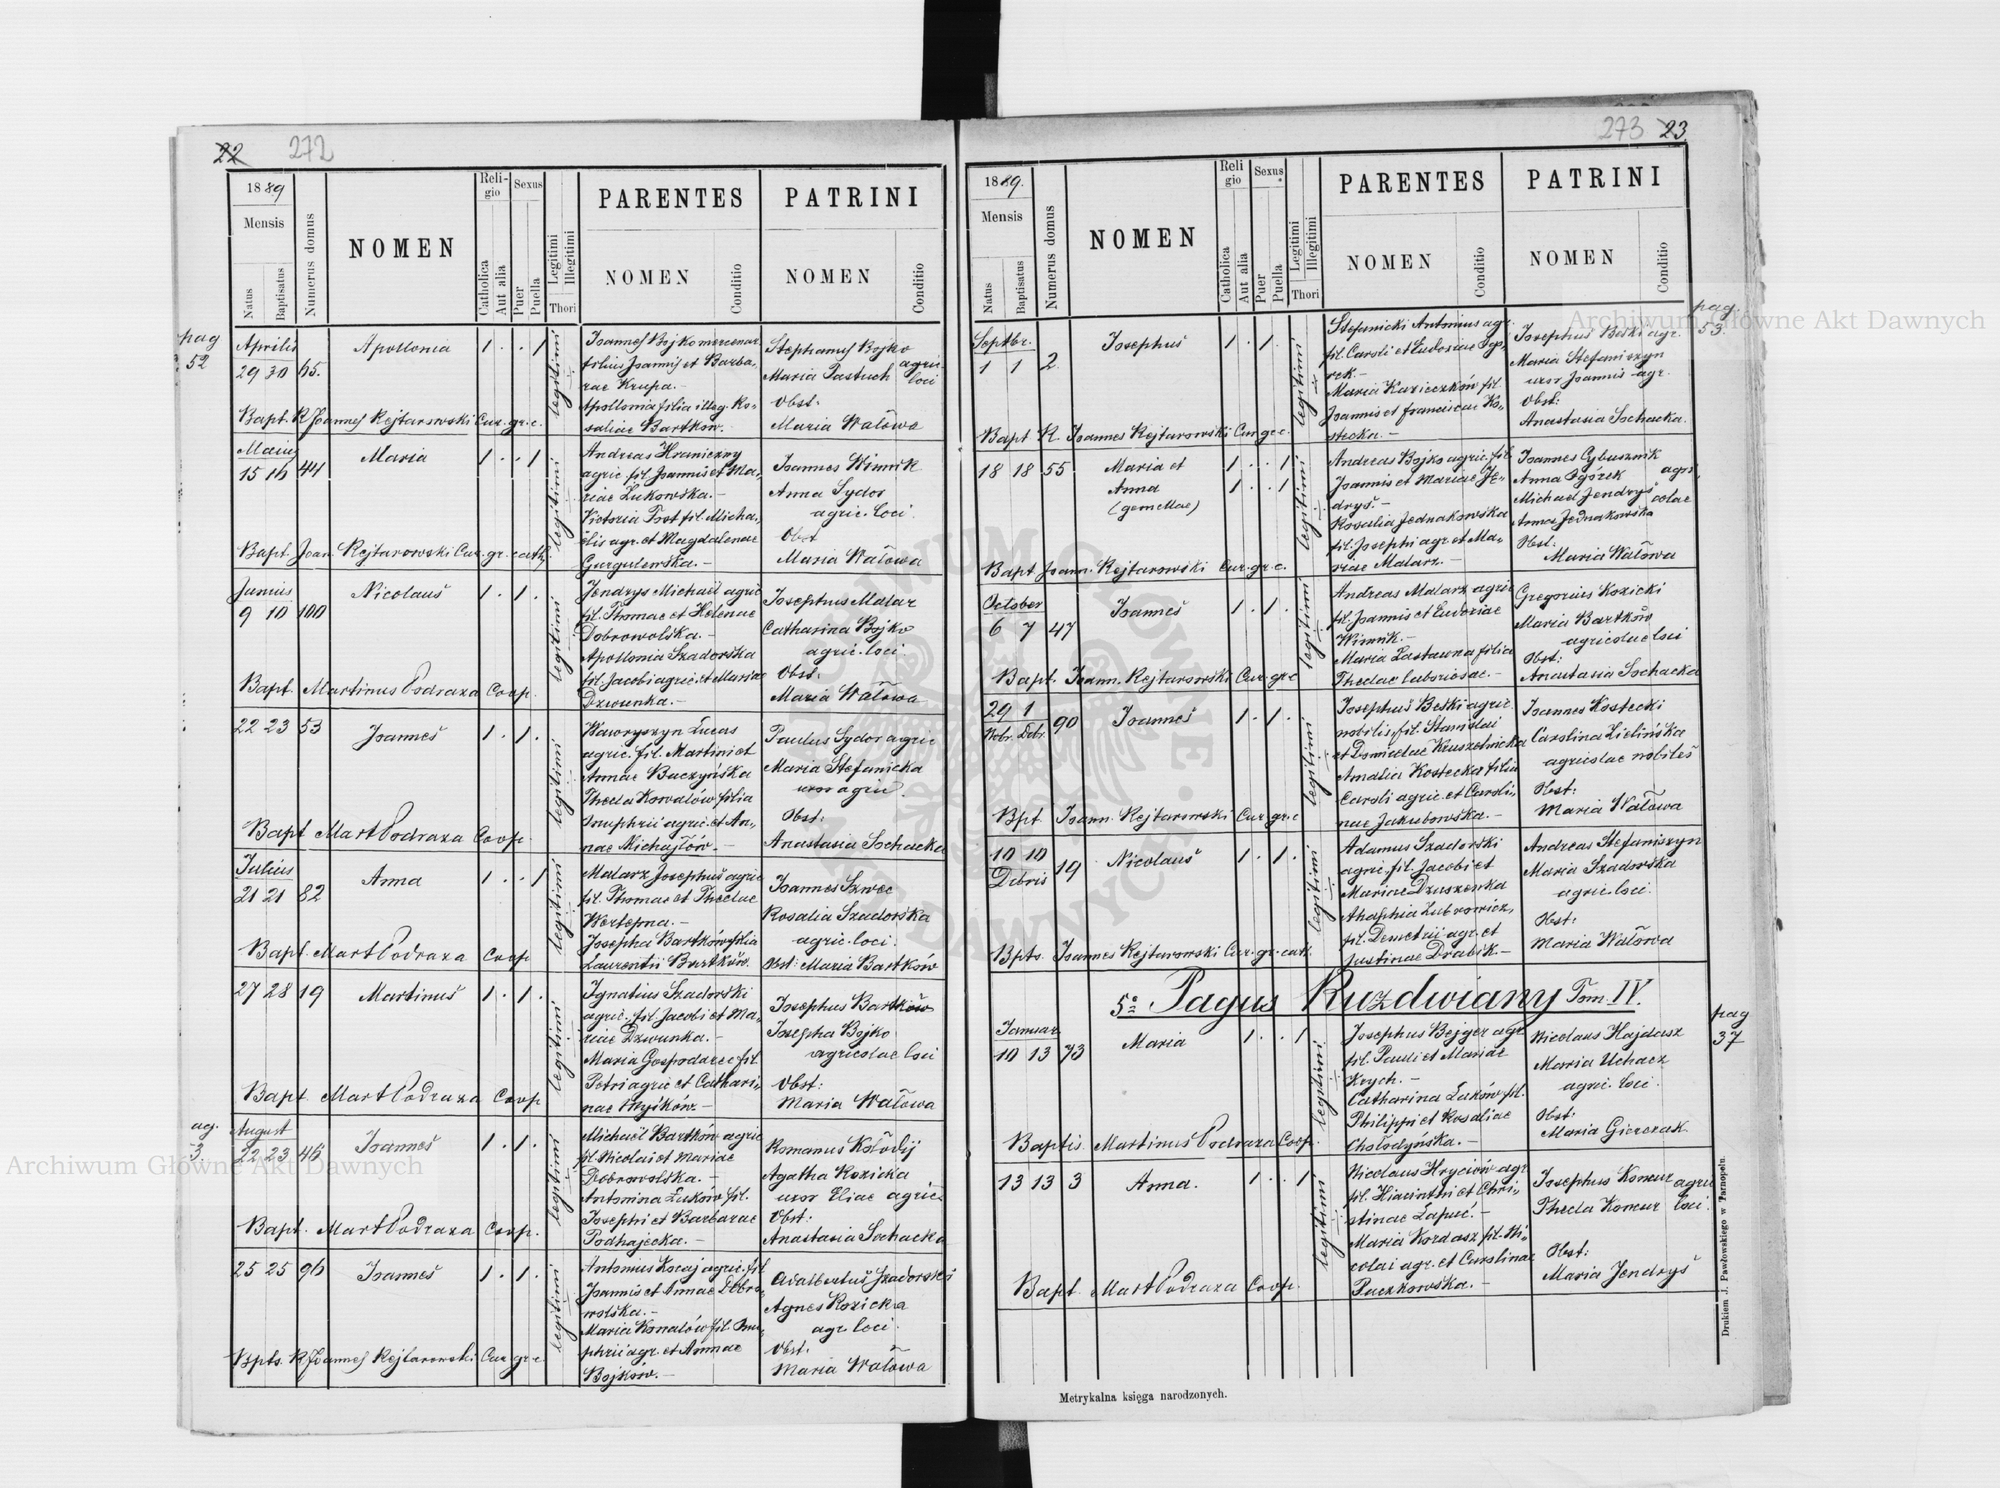 22
272
1889
Mensis
Natus
Baptisatus
Numerus domus
NOMEN
Religio
Catholica
Aut alia
Sexus
Puer
Puella
Legitimi
Illegitimi
Thori
PARENTES
NOMEN
Conditio
PATRINI
NOMEN
Conditio
pag
52
Aprilis
29 30 65.
Apollonia
1 . . 1
legitimi
Joannes Bojko mercenar.
filius Joannis et Barba-
rae Krupa. -
Apollonia filia illeg. Ro-
saliae Bartków. -
Stephanus Bojko
Maria Pastuch agric.
loci
Obst:
Maria Wałowa
Bapt. R Joannes Rejtarowski Cur. gr. c.
Maius
15 16 44
Maria
1 . . 1
legitimi
Andreas Hraniczny
agric. fil. Joannis et Ma-
riae Łukowska. -
Victoria Trot fil. Micha-
elis agr. et Magdalenae
Gurgulewska. -
Joannes Winnik
Anna Sydor
agric. loci
Obst
Maria Wałowa
Bapt. Joan. Rejtarowski Cur. gr. cath.
Junius
9 10 100
Nicolaus
1 . 1 .
legitimi
Jendrys Michael agric
fil. Thomae et Helenae
Dobrowolska. -
Apollonia Szadorska
fil. Jacobi agric. et Mariae
Dzwunka. -
Josephus Malar
Catharina Bojko
agric. loci.
Obst:
Maria Wałowa
Bapt. Martinus Podraza Coop.
22 23 53
Joannes
1 . 1 .
legitimi
Waworyszyn Lucas
agric. fil. Martini et
Annae Baczyńska
Thecla Kowalów filia
Onuphrii agric. et An-
nae Michajłów. -
Paulus Sydor agric
Maria Stefanicka
uxor agric.
Obst:
Anastasia Sochacka
Bapt Mart Podraza Coop.
Julius
21 21 82
Anna
1 . . 1
legitimi
Malarz Josephus agric
fil. Thomae et Theclae
Wertepna. -
Josepha Bartków filia
Laurentii Bartków.
Joannes Szwec
Rosalia Szadorska
agric. loci.
Obst: Maria Bartków
Bapt. Mart Podraza Coop
27 28 19
Martinus
1 . 1 .
legitimi
Ignatius Szadorski
agric. fil. Jacobi et Ma-
riae Dzwunka. -
Maria Gospodarec fil.
Petri agric et Cathari-
nae Myśków. -
Josephus Bartków
Josepha Bojko
agricolae loci
Obst:
Maria Wałowa
Bapt. Mart Podraza Coop
ag.
3.
August
22 23 46
Joannes
1 . 1 .
legitimi
Michael Bartków agric
fil. Nicolai et Mariae
Dobrowolska. -
Antonina Łuków fil.
Josephi et Barbarae
Podhajecka. -
Romanus Kołodij
Agatha Kozicka
uxor Eliae agric.
Obst:
Anastasia Sochacka
Bapt. Mart Podraza Coop.
25 25 96
Joannes
1 . 1 .
legitimi
Antonius Kocaj agric. fil.
Joannis et Annae Dobro-
wolska. -
Maria Konalów fil. Onu-
phrii agr. et Annae
Bojków. -
Adalbertus Szadorski
Agnes Kozicka
agr. loci.
Obst.
Maria Wałowa
Bpts. R Joannes Rejtarowski Cur. gr. c.
273
23
1889.
Mensis
Natus
Baptisatus
Numerus domus
NOMEN
Religio
Catholica
Aut alia
Sexus
Puer
Puella
Legitimi
Illegitimi
Thori
PARENTES
NOMEN
Conditio
PATRINI
NOMEN
Conditio
pag.
53.
Septbr.
1 1 2
Josephus
1 . 1 .
legitimi
Stefanicki Antonius agr.
fil. Caroli et Eudoxiae Ogó-
rek -
Maria Kazieczków fil.
Joannis et Franciscae Ko-
stecka. -
Josephus Beski agr.
Maria Stefaniszyn
uxor Joannis agr.
Obst:
Anastasia Sochacka.
Bapt R. Joannes Rejtarowski Cur gr c.
18 18 55
Maria et
Anna
(gemellae)
1 . . 1
1 . . 1
legitimi
Andreas Bojko agric. fil.
Joannis et Mariae Je-
drys. -
Rosalia Jednakowska
fil. Josephi agr. et Ma-
riae Malarz. -
Joannes Cybusznik
Anna Ogórek agri-
Michael Jendrys colae
Anna Jednakowska
Obst:
Maria Wałowa
Bapt Joann. Rejtarowski Cur. gr. c.
October
6 7 47
Joannes
1 . 1 .
legitimi
Andreas Malarz agric
fil. Joannis et Eudoxiae
Winnik. -
Maria Zastawna filia
Theclae laboriosae. -
Gregorius Kozicki
Maria Bartków
agricolae loci
Obst:
Anastasia Sochacka
Bapt. Joann. Rejtarowski Cur. gr c
29 1
Nobr. Dcbr. 90
Joannes
1 . 1 .
legitimi
Josephus Beski agric.
nobilis, fil. Stanislai
et Domicelae Kruszelnicka
Amalia Kostecka filia
Caroli agric. et Caroli-
nae Jakubowska. -
Joannes Kostecki
Carolina Zielińska
agricolae nobiles
Obst:
Maria Wałowa
Bpt Joann. Rejtarowski Cur. gr. c
10 10
Debris 19
Nicolaus
1 . 1 .
legitimi
Adamus Szadorski
agric. fil. Jacobi et
Mariae Dzuszenka
Anaphia Lubrowicz,
fil. Demetrii agr. et
Justinae Drabik -
Andreas Stefaniszyn
Maria Szadorska
agric. loci
Obst:
Maria Wałowa
Bpts. Joannes Rejtarowski Cur. gr. cath.
5º Pagus Ruzdwiany Tom. IV.
pag
37
Januar.
10 13 73
Maria
1 . . 1
legitimi
Josephus Bejger agr
fil. Pauli et Mariae
Krych. -
Catharina Łuków fil.
Philippi et Rosaliae
Chołodyńska. -
Nicolaus Hajdasz
Maria Uchacz
agric. loci.
Obst:
Maria Gierczak
Baptis. Martinus Podraza Coop.
13 13 3
Anna.
1 . . 1
legitimi
Nicolaus Hryciów agr
fil. Hiacinthi et Chri-
stinae Łapuć. -
Maria Kordasz fil. Ni-
colai agr. et Carolinae
Paczkowska. -
Josephus Komur agric
Thecla Komur loci.
Obst:
Maria Jendrys
Bapt. Mart Podraza Coop.
Drukiem J. Pawłowskiego w Tarnopolu.
Metrykalna księga narodzonych.
Archiwum Główne Akt Dawnych
Archiwum Główne Akt Dawnych
ARCHIWUM GŁÓWNE AKT DAWNYCH